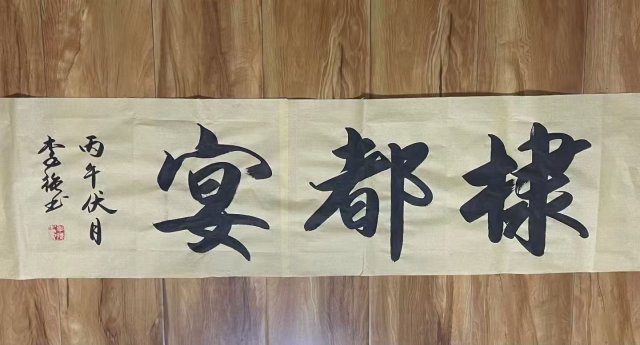 棣都宴
丙午伏月
李 书